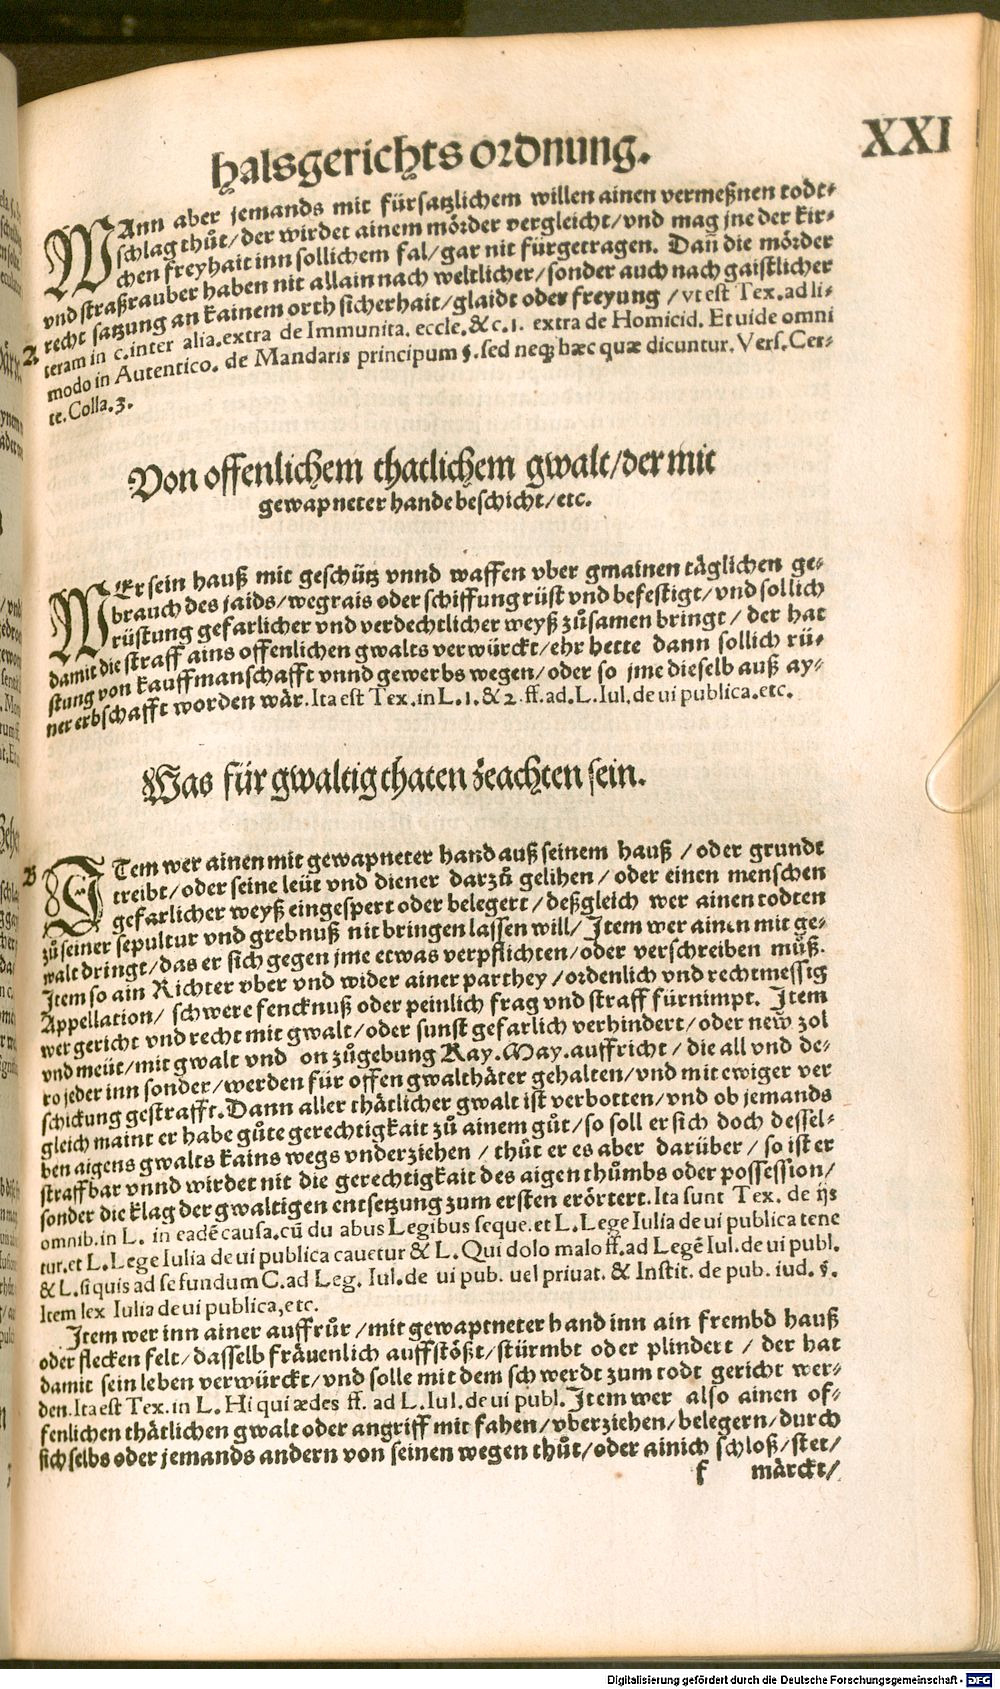 halsgerichts ordnung.
XXI
WAnn aber jemands mit fürsatzlichem willen ainen vermeßnen todt-
schlag thůt/der wirdet ainem mörder vergleicht/vnd mag jne der kir-
chen freyhait inn sollichem fal/gar nit fürgetragen. Dañ die mörder
vnd straßrauber haben nit allain nach weltlicher/sonder auch nach gaistlicher
recht satzung an kainem orth sicherhait/glaidt oder freyung /vt est Tex. ad li-
A
teram in c.inter alia.extra de Immunita. eccle.&c.1. extra de Homicid. Et uide omni
modo in Autentico. de Mandatis principum §.sed neqꝫ hæc quæ dicuntur. Vers.Cer-
te.Colla.3.
Von offenlichem thatlichem gwalt/der mit
gewapneter hande beschicht/etc.
WEr sein hauß mit geschütz vnnd waffen vber gmainen täglichen ge-
brauch des jaids/wegrais oder schiffung rüst vnd befestigt/vnd sollich
rüstung gefarlicher vnd verdechtlicher weyß zůsamen bringt / der hat
damit die straff ains offenlichen gwalts verwürckt/ehr hette dann sollich rü-
stung von kauffmanschafft vnnd gewerbs wegen/oder so jme dieselb auß ay-
ner erbschafft worden wär.Ita est Tex.in L.1.&2.ff.ad.L.Iul.de ui publica.etc.
Was für gwaltig thaten zeachten sein.
B
ITem wer ainen mit gewapneter hand auß seinem hauß /oder grundt
treibt/oder seine leüt vnd diener darzů gelihen/ oder einen menschen
gefarlicher weyß eingespert oder belegert/ deßgleich wer ainen todten
zů seiner sepultur vnd grebnuß nit bringen lassen will/ Item wer ainen mit ge-
walt dringt/das er sich gegen jme etwas verpflichten/oder verschreiben můß.
Item so ain Richter vber vnd wider ainer parthey /ordenlich vnd rechtmessig
Appellation/ schwere fencknuß oder peinlich frag vnd straff fürnimpt. Item
wer gericht vnd recht mit gwalt/oder sunst gefarlich verhindert/oder new zol
vnd meüt/mit gwalt vnd on zůgebung Kay.May.auffricht / die all vnd de-
ro jeder inn sonder/werden für offen gwalthäter gehalten/vnd mit ewiger ver
schickung gestrafft.Dann aller thätlicher gwalt ist verbotten/vnd ob jemands
gleich maint er habe gůte gerechtigkait zů ainem gůt/so soll er sich doch dessel-
ben aigens gwalts kains wegs vnderziehen / thůt er es aber darüber / so ist er
straffbar vnnd wirdet nit die gerechtigkait des aigenthůmbs oder possession/
sonder die klag der gwaltigen entsetzung zum ersten erörtert.Ita sunt Tex. de ijs
omnib.in L. in eadē causa.cū du abus Legibus seque.et L.Lege Iulia de ui publica tene
tur.et L.Lege Iulia de ui publica cauetur & L. Qui dolo malo ff.ad Legē Iul.de ui publ.
& L.si quis ad se fundum C.ad Leg. Iul.de ui pub. uel priuat. & Instit. de pub. iud. §.
Item lex Iulia de ui publica,etc.
Item wer inn ainer auffrůr /mit gewaptneter hand inn ain frembd hauß
oder flecken felt/dasselb frävenlich auffstößt/stürmbt oder plindert / der hat
damit sein leben verwürckt/vnd solle mit dem schwerdt zum todt gericht wer-
den.Ita est Tex.in L. Hi qui ædes ff. ad L.Iul.de ui publ. Item wer also ainen of-
fenlichen thätlichen gwalt oder angriff mit fahen/vberziehen/belegern/durch
sich selbs oder jemands andern von seinen wegen thůt/oder ainich schloß/stet/
f märckt/
Digitalisierung gefördert durch die Deutsche Forschungsgemeinschaft - DFG